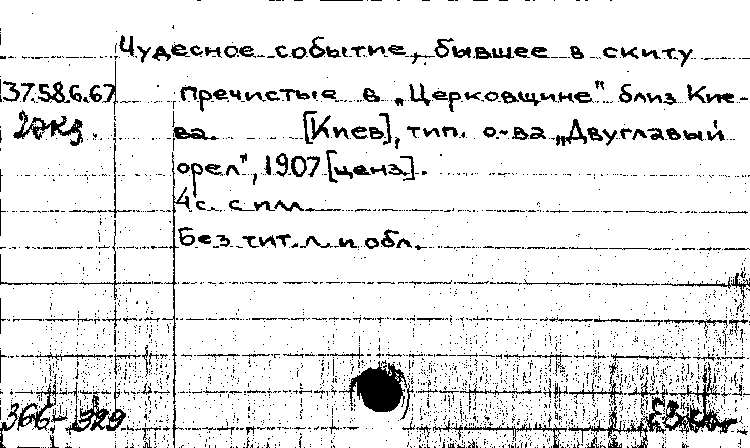 Чудесное событие, бывшее в скиту
37.58.6.67 пречистые в „Церковщине" близ Кие-
2 экз. ва. [Киев], тип. о-ва „Двуглавый
орел", 1907 [ценз.].
4 с. с илл.
Без тит. л. и обл.
366-329